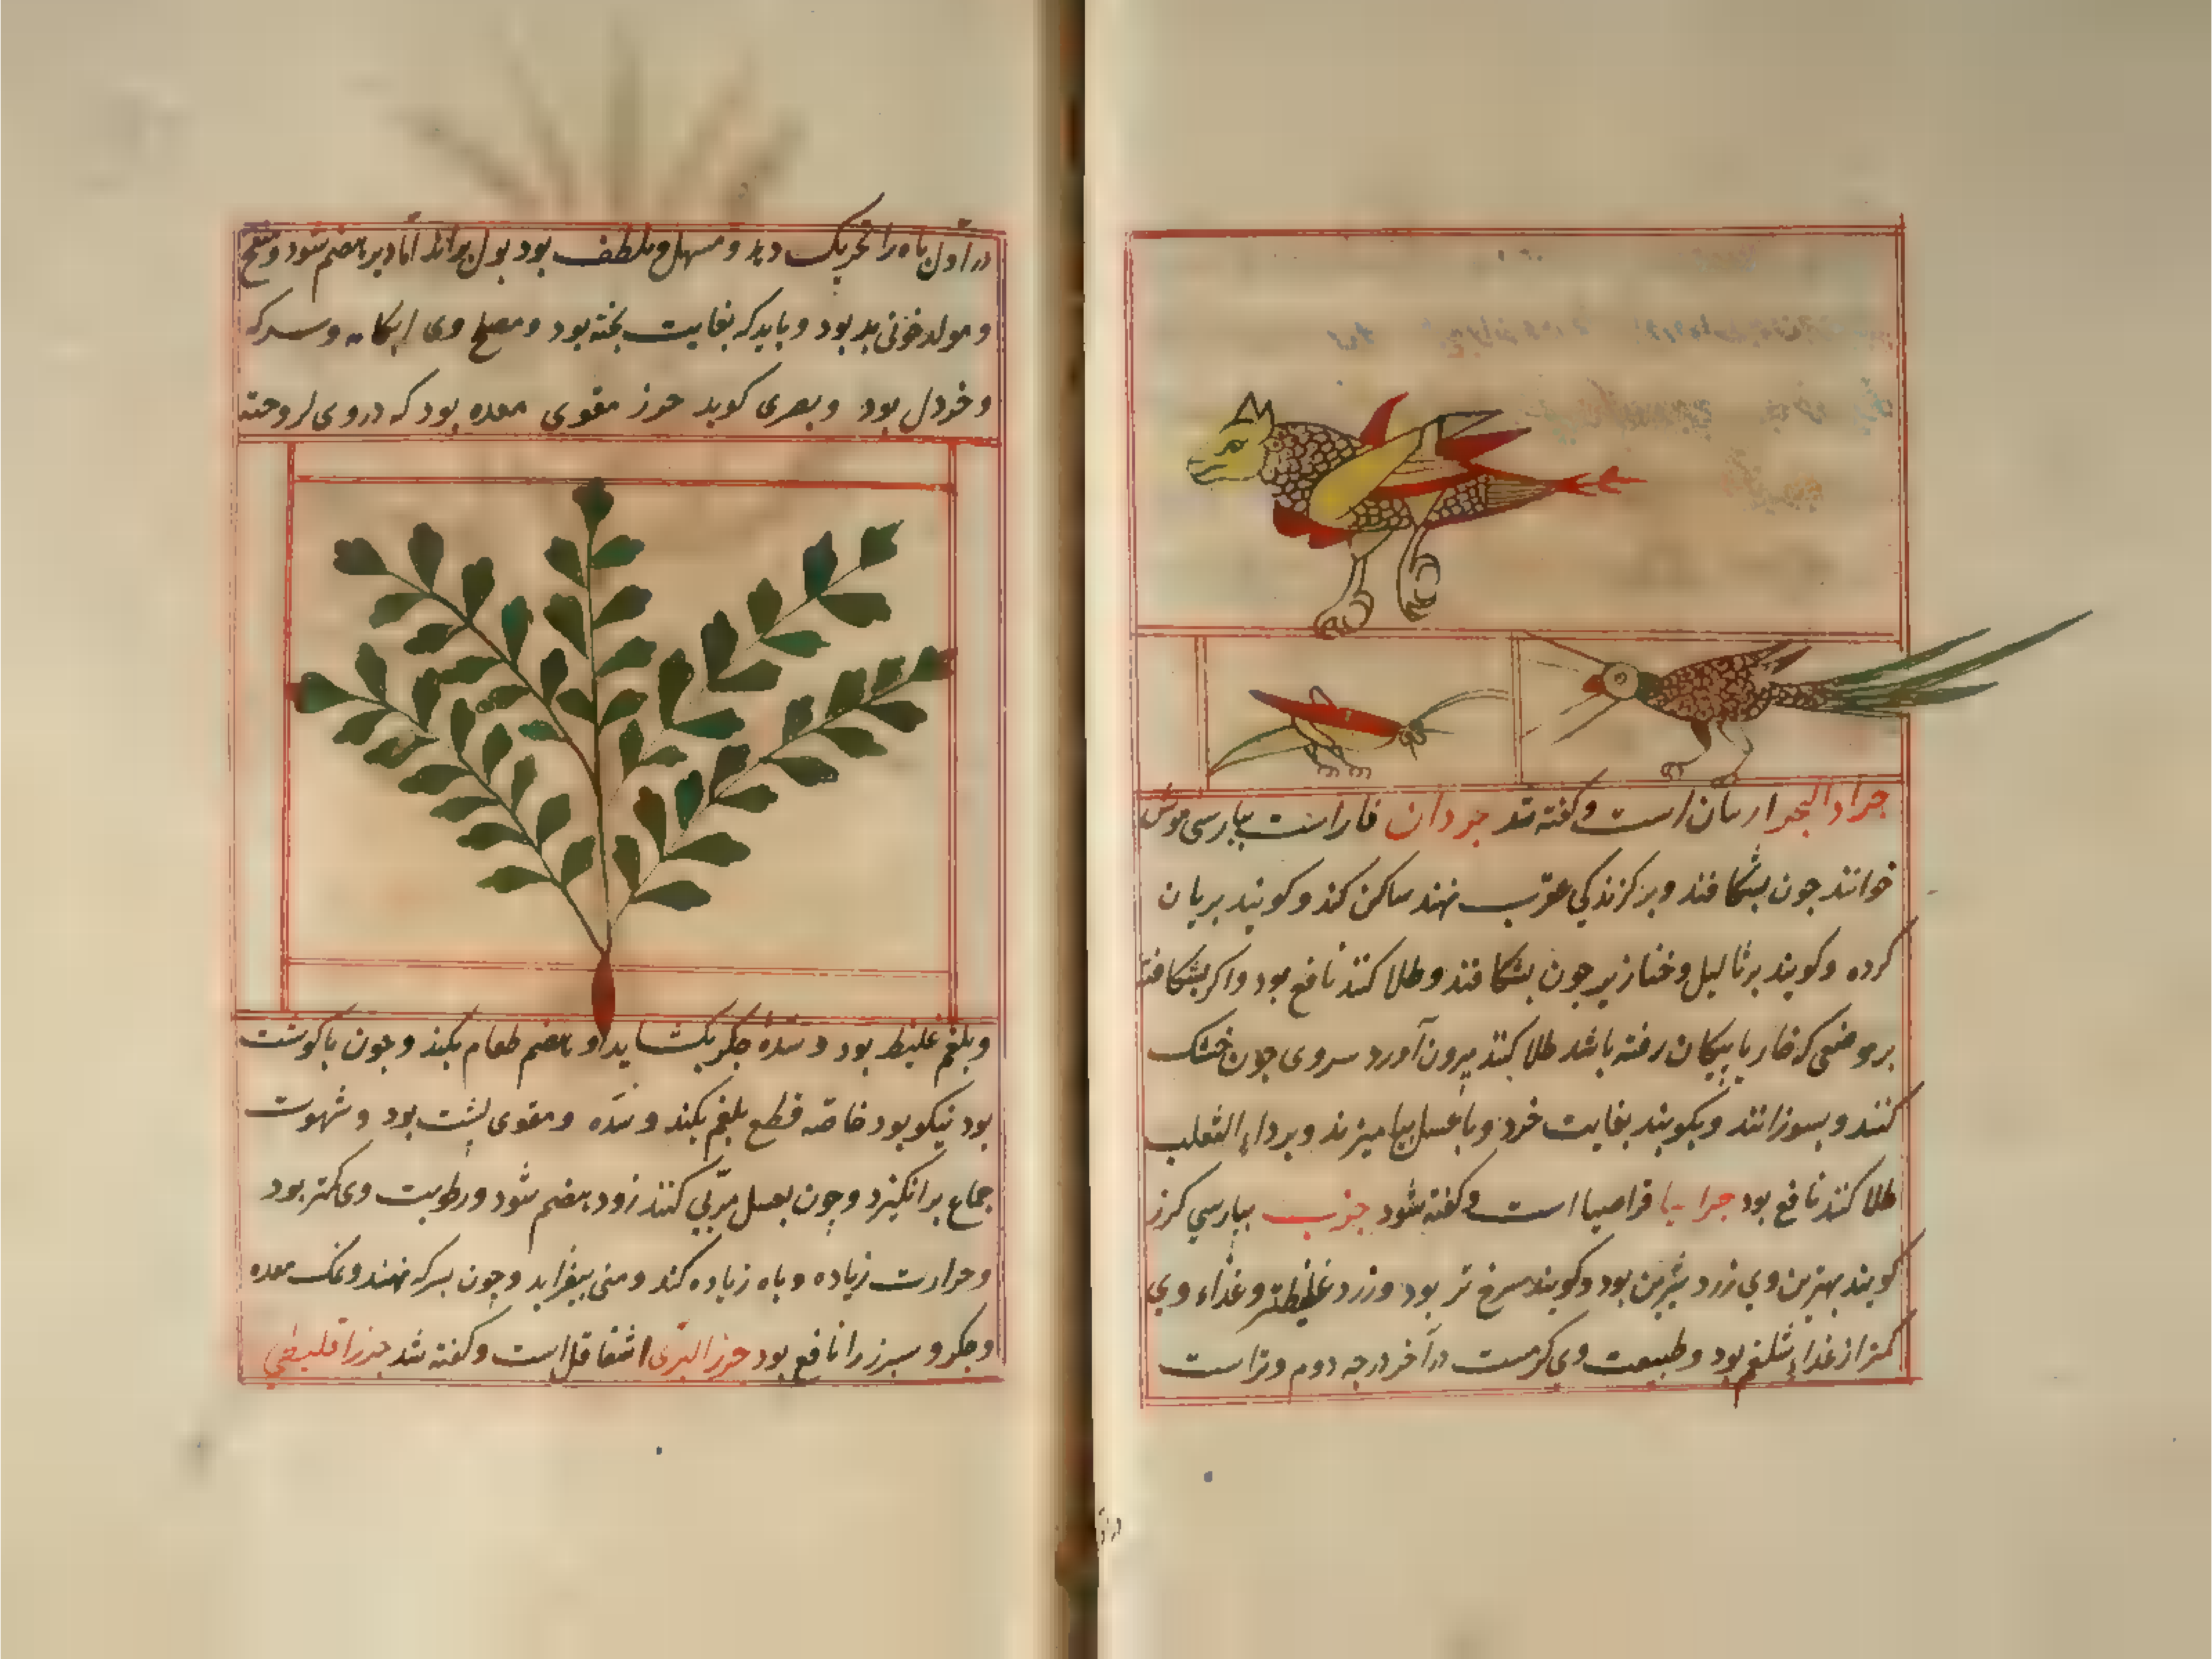 جراد البحر اربیان است و گفته شد جردان فاراست بپارسی موش
خوانند چون بشکافند و بر گزندگی عقرب نهند ساکن کند و گویند بریان
کرده و گویند بر ثالیل و خنازیر چون بشکافند و طلا کنند نافع بود و اگر بشکافند
بر موضعی که خار یا پیکان رفته باشد طلا کنند بیرون آورد سر وی چون خشک
کنند و بسوزانند و بکوبند بغایت خرد و با عسل بیامیزند و بر داء الثعلب
طلا کنند نافع بود جراسیا قراصیا است و گفته شود جزر بپارسی گزر
گویند بهترین وی زرد شیرین بود و گویند سرخ تر بود و زرد غلیظتر و غذاء وی
کمتر از غذاء شلغم بود و طبیعت وی گرمست در آخر درجه دوم و تر است
در اول باه را تحریک دهد و مسهل و ملطف بود بول براند اما دیر هضم شود و منفخ
و مولد خونی بد بود و باید که بغایت پخته بود و مصلح وی آبکامه و سرکه
و خردل بود و بصری گوید جزر مقوی معده بود که در وی لزوجت
و بلغم غلیظ بود و سده جگر بگشاید و هضم طعام بکند و چون با گوشت
بود نیکو بود خاصه قطع بلغم بکند و سده و مقوی پشت بود و شهوت
جماع برانگیزد و چون بعسل مربی کنند زود هضم شود و رطوبت وی کمتر بود
و حرارت زیاده و باه زیاده کند و منی بیفزاید و چون بسرکه نهند و نمک معده
و جگر و سپرز را نافع بود جزر البری اشقاقل است و گفته شد جزر اقلیطی